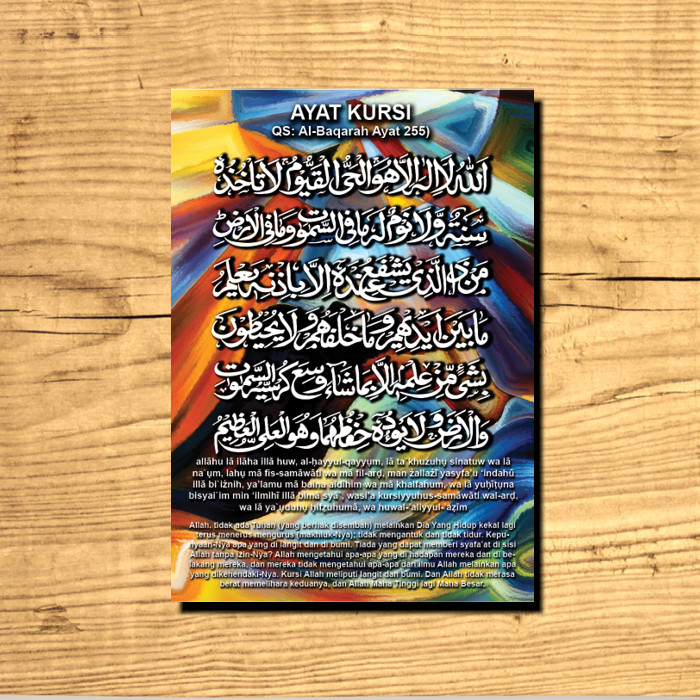 AYAT KURSI
QS: Al-Baqarah Ayat 255)
اَللّٰهُ لَا اِلٰهَ اِلَّا هُوَ الْحَيُّ الْقَيُّوْمُ لَا تَأْخُذُهٗ
سِنَةٌ وَّلَا نَوْمٌ لَهٗ مَا فِى السَّمٰوٰتِ وَمَا فِى الْاَرْضِ
مَنْ ذَا الَّذِيْ يَشْفَعُ عِنْدَهٗ اِلَّا بِاِذْنِهٖ يَعْلَمُ
مَا بَيْنَ اَيْدِيْهِمْ وَمَا خَلْفَهُمْ وَلَا يُحِيْطُوْنَ
بِشَيْءٍ مِّنْ عِلْمِهٖ اِلَّا بِمَا شَاءَ وَسِعَ كُرْسِيُّهُ السَّمٰوٰتِ
وَالْاَرْضَ وَلَا يَـُٔوْدُهٗ حِفْظُهُمَا وَهُوَ الْعَلِيُّ الْعَظِيْمُ
allāhu lā ilāha illā huw, al-ḥayyul-qayyụm, lā ta`khużuhụ sinatuw wa lā
na`ụm, lahụ mā fis-samāwāti wa mā fil-arḍ, man żallażī yasyfa'u 'indahū
illā bi`iżnih, ya'lamu mā baina aidīhim wa mā khalfahum, wa lā yuḥīṭụna
bisyai`im min 'ilmihī illā bimā syā`, wasi'a kursiyyuhus-samāwāti wal-arḍ,
wa lā ya`ụduhụ ḥifẓuhumā, wa huwal-'aliyyul-'aẓīm
Allah, tidak ada Tuhan (yang berhak disembah) melainkan Dia Yang Hidup kekal lagi
terus menerus mengurus (makhluk-Nya); tidak mengantuk dan tidak tidur. Kepu-
nyaan-Nya apa yang di langit dan di bumi. Tiada yang dapat memberi syafa'at di sisi
Allah tanpa izin-Nya? Allah mengetahui apa-apa yang di hadapan mereka dan di be-
lakang mereka, dan mereka tidak mengetahui apa-apa dari ilmu Allah melainkan apa
yang dikehendaki-Nya. Kursi Allah meliputi langit dan bumi. Dan Allah tidak merasa
berat memelihara keduanya, dan Allah Maha Tinggi lagi Maha Besar.